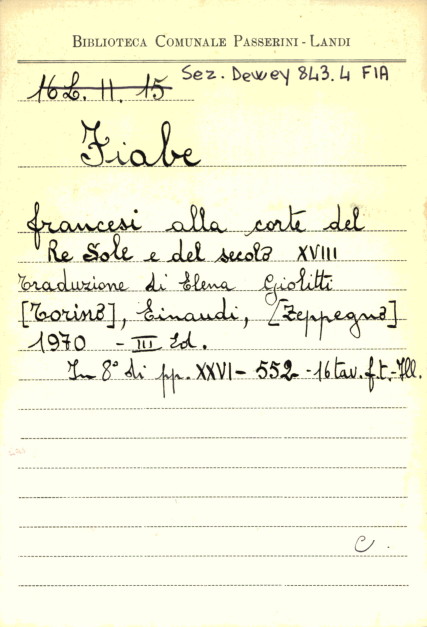 BIBLIOTECA COMUNALE PASSERINI - LANDI
16 L. II. 15 Sez. Dewey 843.4 FIA
Fiabe
francesi alla corte del
Re Sole e del secolo XVIII
Traduzione di Elena Giolitti
[Torino], Einaudi, [Zeppegno]
1970 - III Ed.
In 8° di pp. XXVI - 552 - 16 tav. f. t. - Ill.
C.